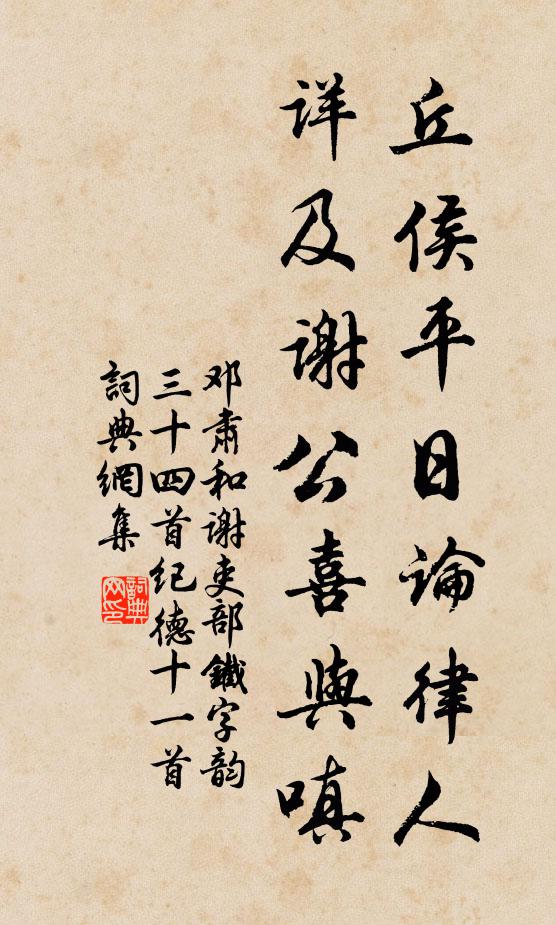 丘侯平日论律人
详及谢公喜與嗔
邓肃和谢吏部鐵字韵
三十四首纪德十一首
詞典網集
詞典
网印